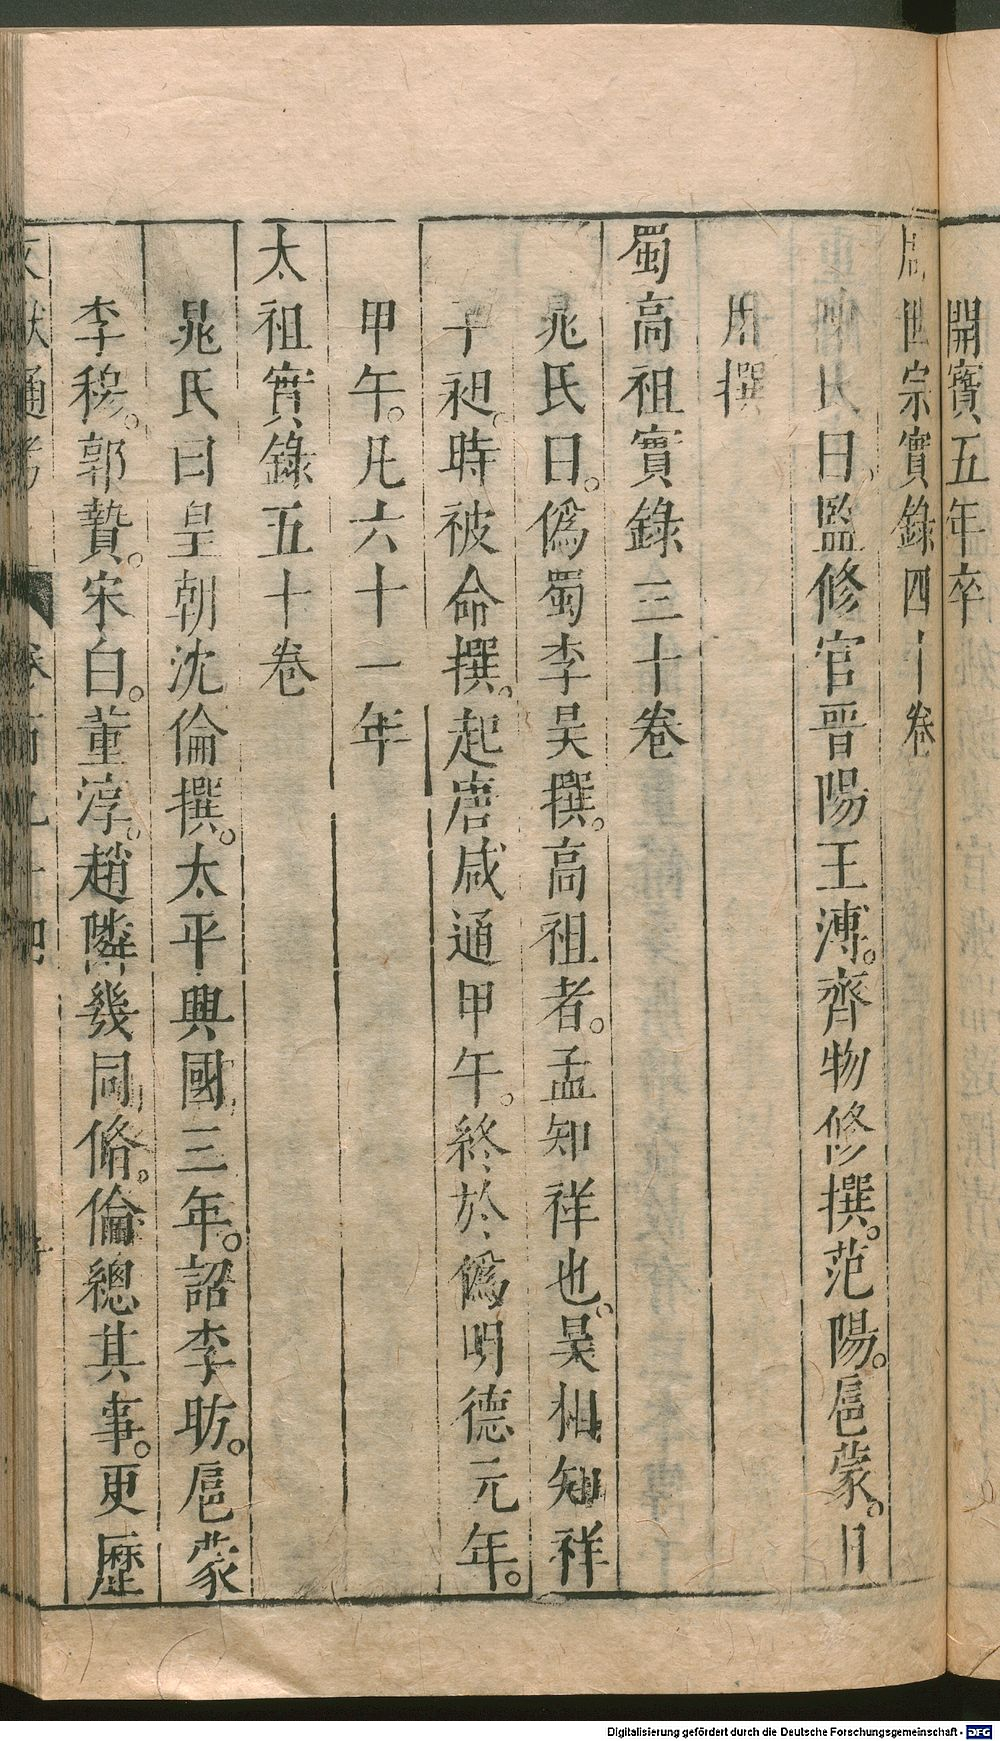 開寶五年卒
周世宗實錄四十卷
氏曰監修官晋陽王溥。齊物修撰。范陽。扈蒙。日
用撰
蜀高祖實錄三十卷
晁氏曰。僞蜀李昊撰。高祖者。孟知祥也。昊相知祥
子昶。時被命撰。起唐咸通甲午。終於僞明德元年。
甲午。凡六十一年
太祖實錄五十卷
晁氏曰皇朝沈倫撰。太平興國三年。詔李昉。扈蒙
李穆。郭贄。宋白。董淳。趙隣幾同脩。倫總其事。更歷
文獻通考 卷百九十四
Digitalisierung gefördert durch die Deutsche Forschungsgemeinschaft - DFG